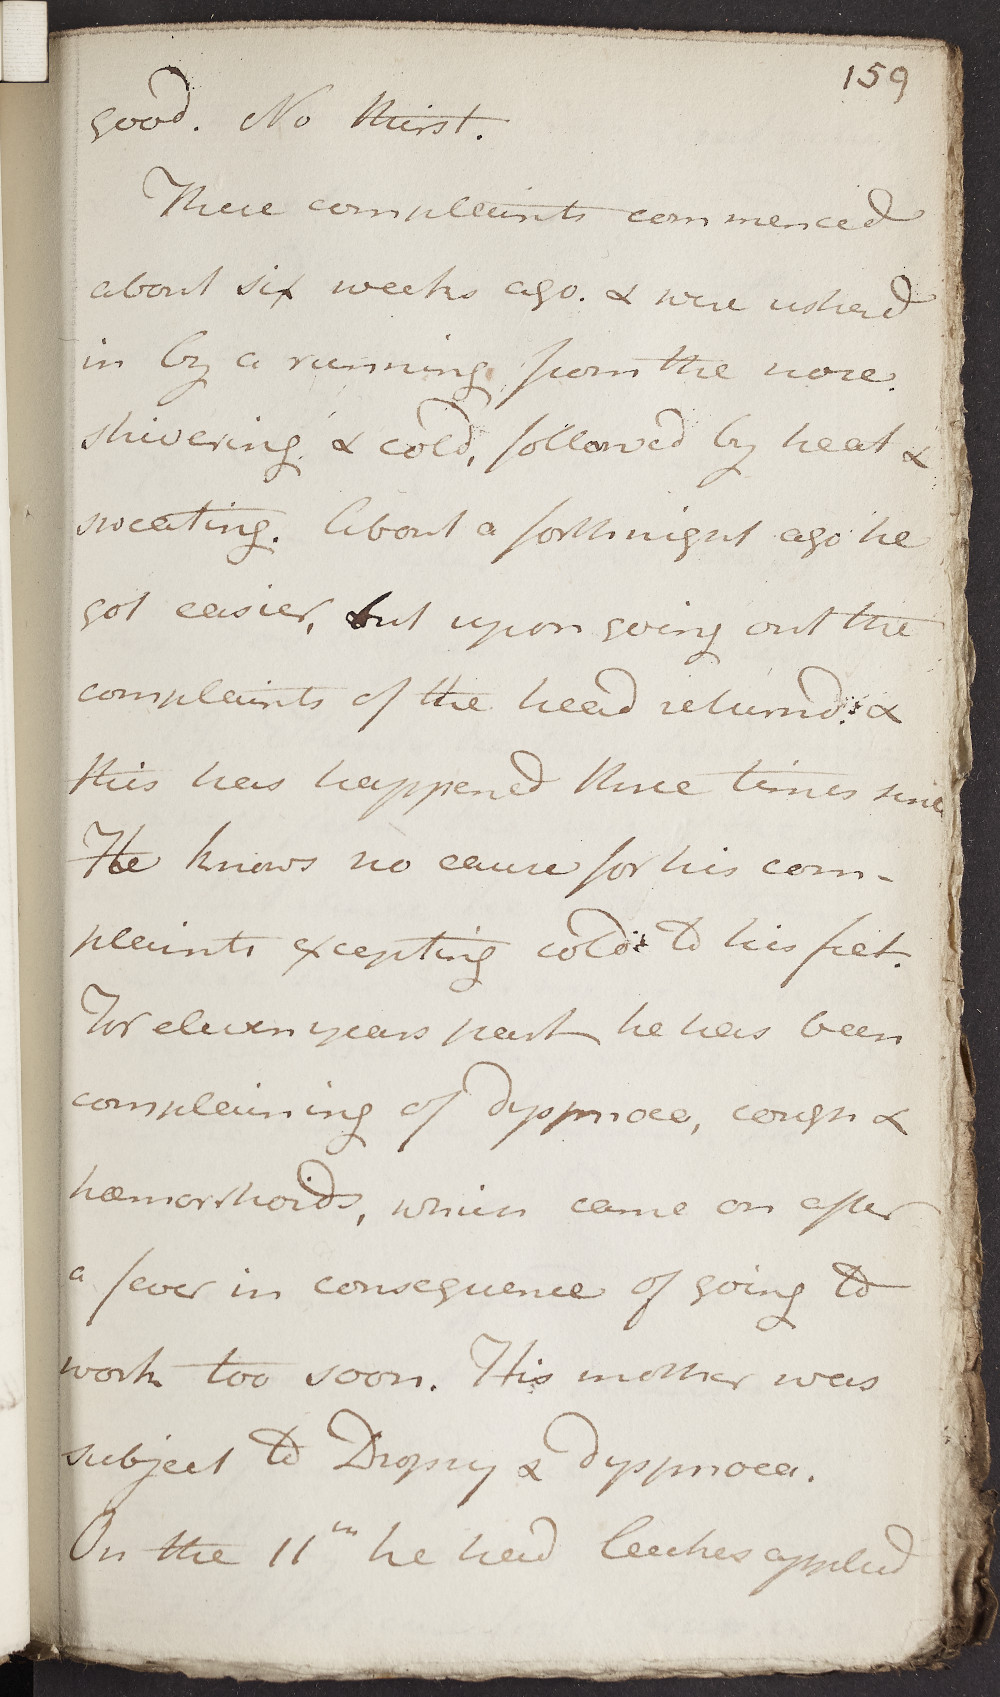 159
good. No thirst.
These complaints commenced
about six weeks ago. & were usherd
in by a running from the nose.
shivering & cold, followed by heat &
sweating. About a forthnight ago he
got easier, but upon going out the
complaints of the head returnd. &
this has happened three times since
He knows no cause for his com-
plaints excepting cold to his feet.
For eleven years past he has been
complaining of dyspnoea, cough &
hæmorrhoids, which came on after
a fever in consequence of going to
work too soon. His mother was
subject to Dropsy & dyspnoea.
On the 11th he had leeches applied